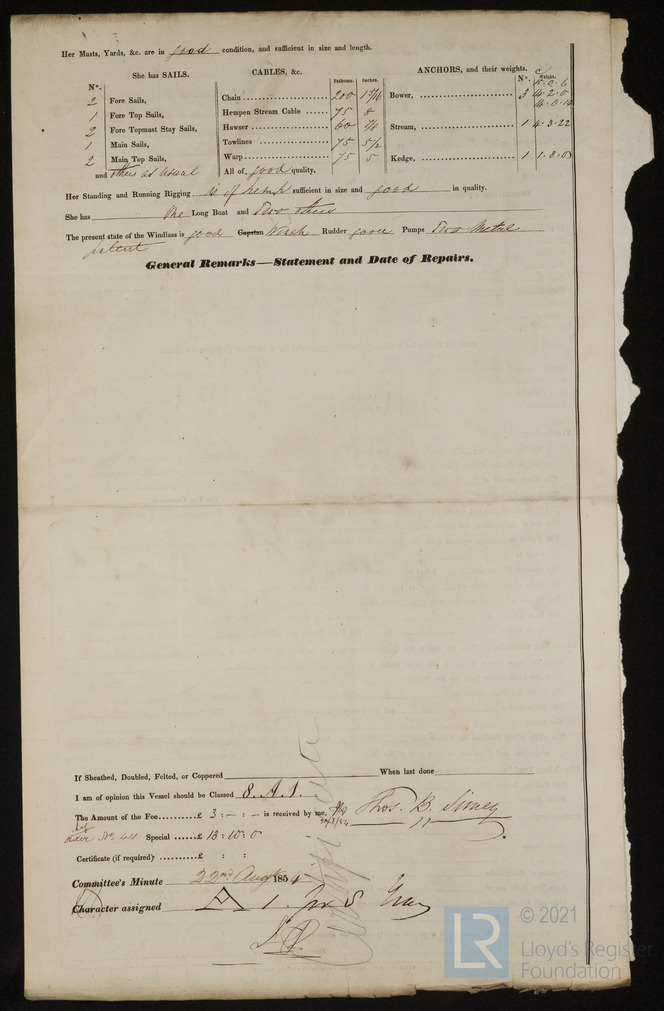 Her Masts, Yards, &c. are in good condition, and sufficient in size and length.
She has SAILS.
CABLES, &c.
ANCHORS, and their weights.
N°.
Fathoms.
Inches.
N°.
Weight.
2 Fore Sails,
1 Fore Top Sails,
2 Fore Topmast Stay Sails,
1 Main Sails,
2 Main Top Sails,
and others as usual
Chain 200
Hempen Stream Cable 75 8
Hawser 60 7/8
Towlines 75 5 1/2
Warp 75 5
All of good quality.
Bower, 3
4.2.0
Stream, 1 4.3.22
Kedge, 1 1.3.0
Her Standing and Running Rigging is of hemp sufficient in size and good in quality.
She has One Long Boat and Two others
The present state of the Windlass is good Capstan Winch Rudder good Pumps Two Metal
patent
General Remarks—Statement and Date of Repairs.
If Sheathed, Doubled, Felted, or Coppered When last done
I am of opinion this Vessel should be Classed 8. A. 1.
The Amount of the Fee £ 3 : - : - is received by me,
Thos. B. Simey
Special £ 13 : 10 : 0
Certificate (if required) £ : :
Committee's Minute 22nd Augt 1854
Character assigned A 1. for 8
© 2021
LR
Lloyd's Register
Foundation